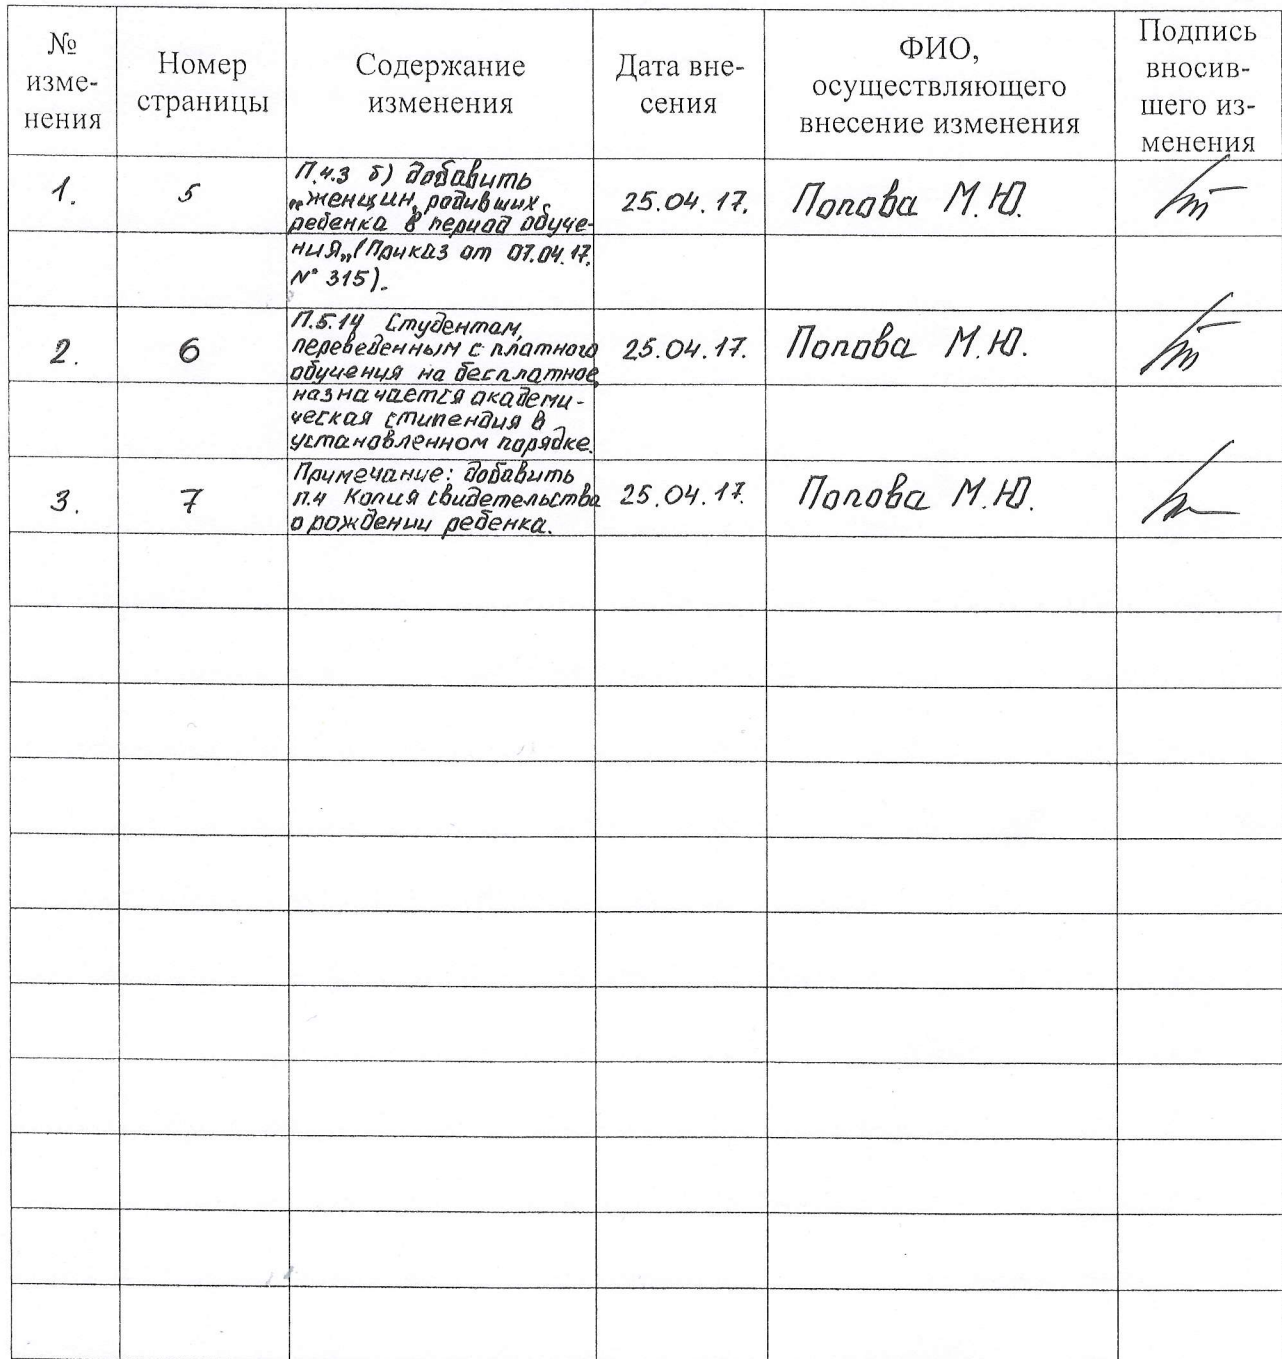 №
изме-
нения
Номер
страницы
Содержание
изменения
Дата вне-
сения
ФИО,
осуществляющего
внесение изменения
Подпись
вносив-
шего из-
менения
1.
5
П.4.3 б) добавить
„женщин, родивших
ребенка в период обуче-
ния„ (Приказ от 07.04.17.
№ 315).
25.04.17.
Попова М.Ю.
2.
6
П.5.14 Студентам,
переведенным с платного
обучения на бесплатное,
назначается академи-
ческая стипендия в
установленном порядке.
25.04.17.
Попова М.Ю.
3.
7
Примечание: добавить
п.4 Копия свидетельства
о рождении ребенка.
25.04.17.
Попова М.Ю.